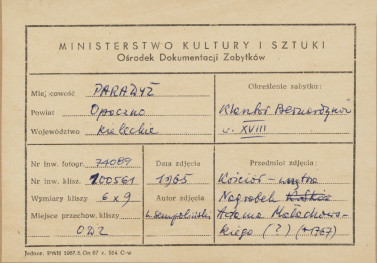 MINISTERSTWO KULTURY I SZTUKI
Ośrodek Dokumentacji Zabytków
Miejscowość PARADYŻ
Powiat Opoczno
Województwo Kieleckie
Określenie zabytku:
Klasztor Bernardynów
w. XVIII
Nr inw. fotogr. 74089
Nr inw. klisz. 100561
Wymiary kliszy 6 x 9
Miejsce przechow. kliszy
ODZ
Data zdjęcia
1965
Autor zdjęcia
Przedmiot zdjęcia:
Kościół - wnętrze
Nagrobek
Adama Małachows-
kiego (?) (+1767)